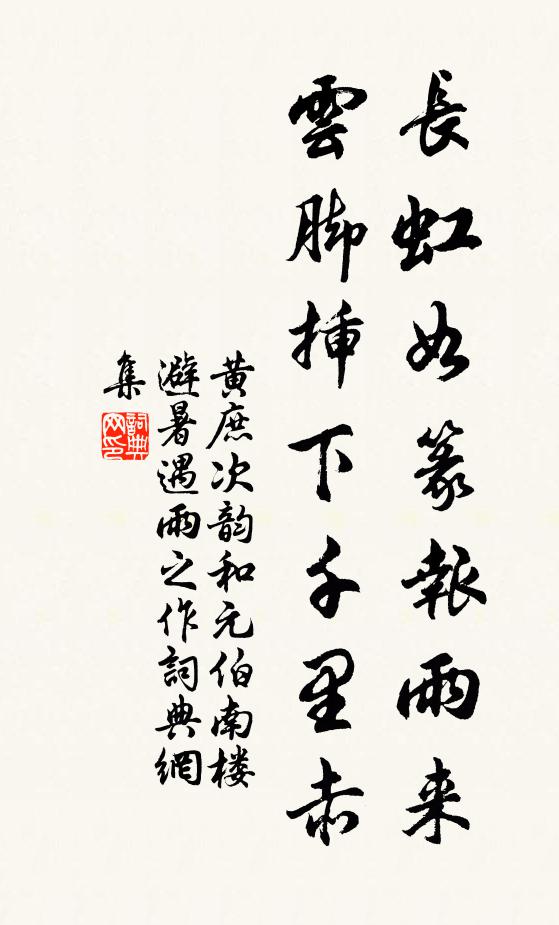 長虹如篆報雨来
雲脚挿下千里赤
黄庶次韵和元伯南楼
避暑遇雨之作詞典網
集
詞典网印